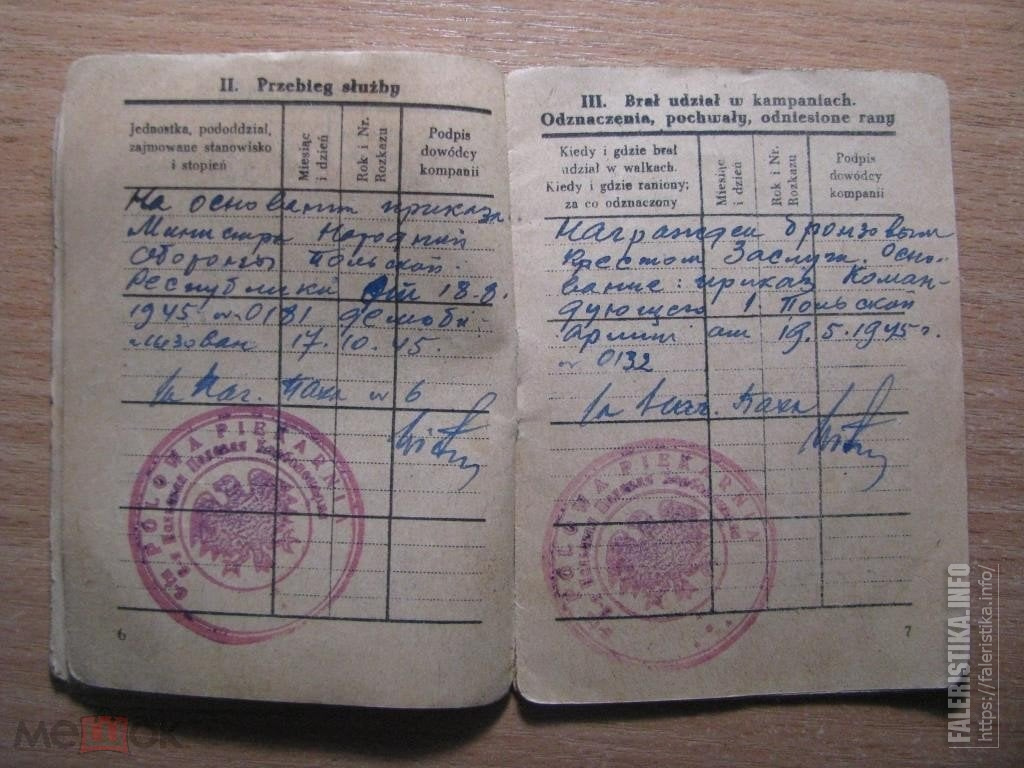 II. Przebieg służby
Jednostka, pododdział,
zajmowane stanowisko
i stopień
Miesiąc
i dzień
Rok i Nr.
Rozkazu
Podpis
dowódcy
kompanii
На основании приказа
Министра Народной
Обороны Польской
Республики от 18.8.
1945 № 0181 демоби-
лизован 17.10.45.
6
POLOWA PIEKARNIA
6
III. Brał udział w kampaniach.
Odznaczenia, pochwały, odniesione rany
Kiedy i gdzie brał
udział w walkach.
Kiedy i gdzie raniony;
za co odznaczony
Miesiąc
i dzień
Rok i Nr.
Rozkazu
Podpis
dowódcy
kompanii
Награжден бронзовым
Крестом Заслуги. Осно-
вание: приказ Коман-
дующего 1 Польской
Армии от 19.5.1945 г.
№ 0132
POLOWA PIEKARNIA
7
МешОк
FALERISTIKA.INFO
https://faleristika.info/